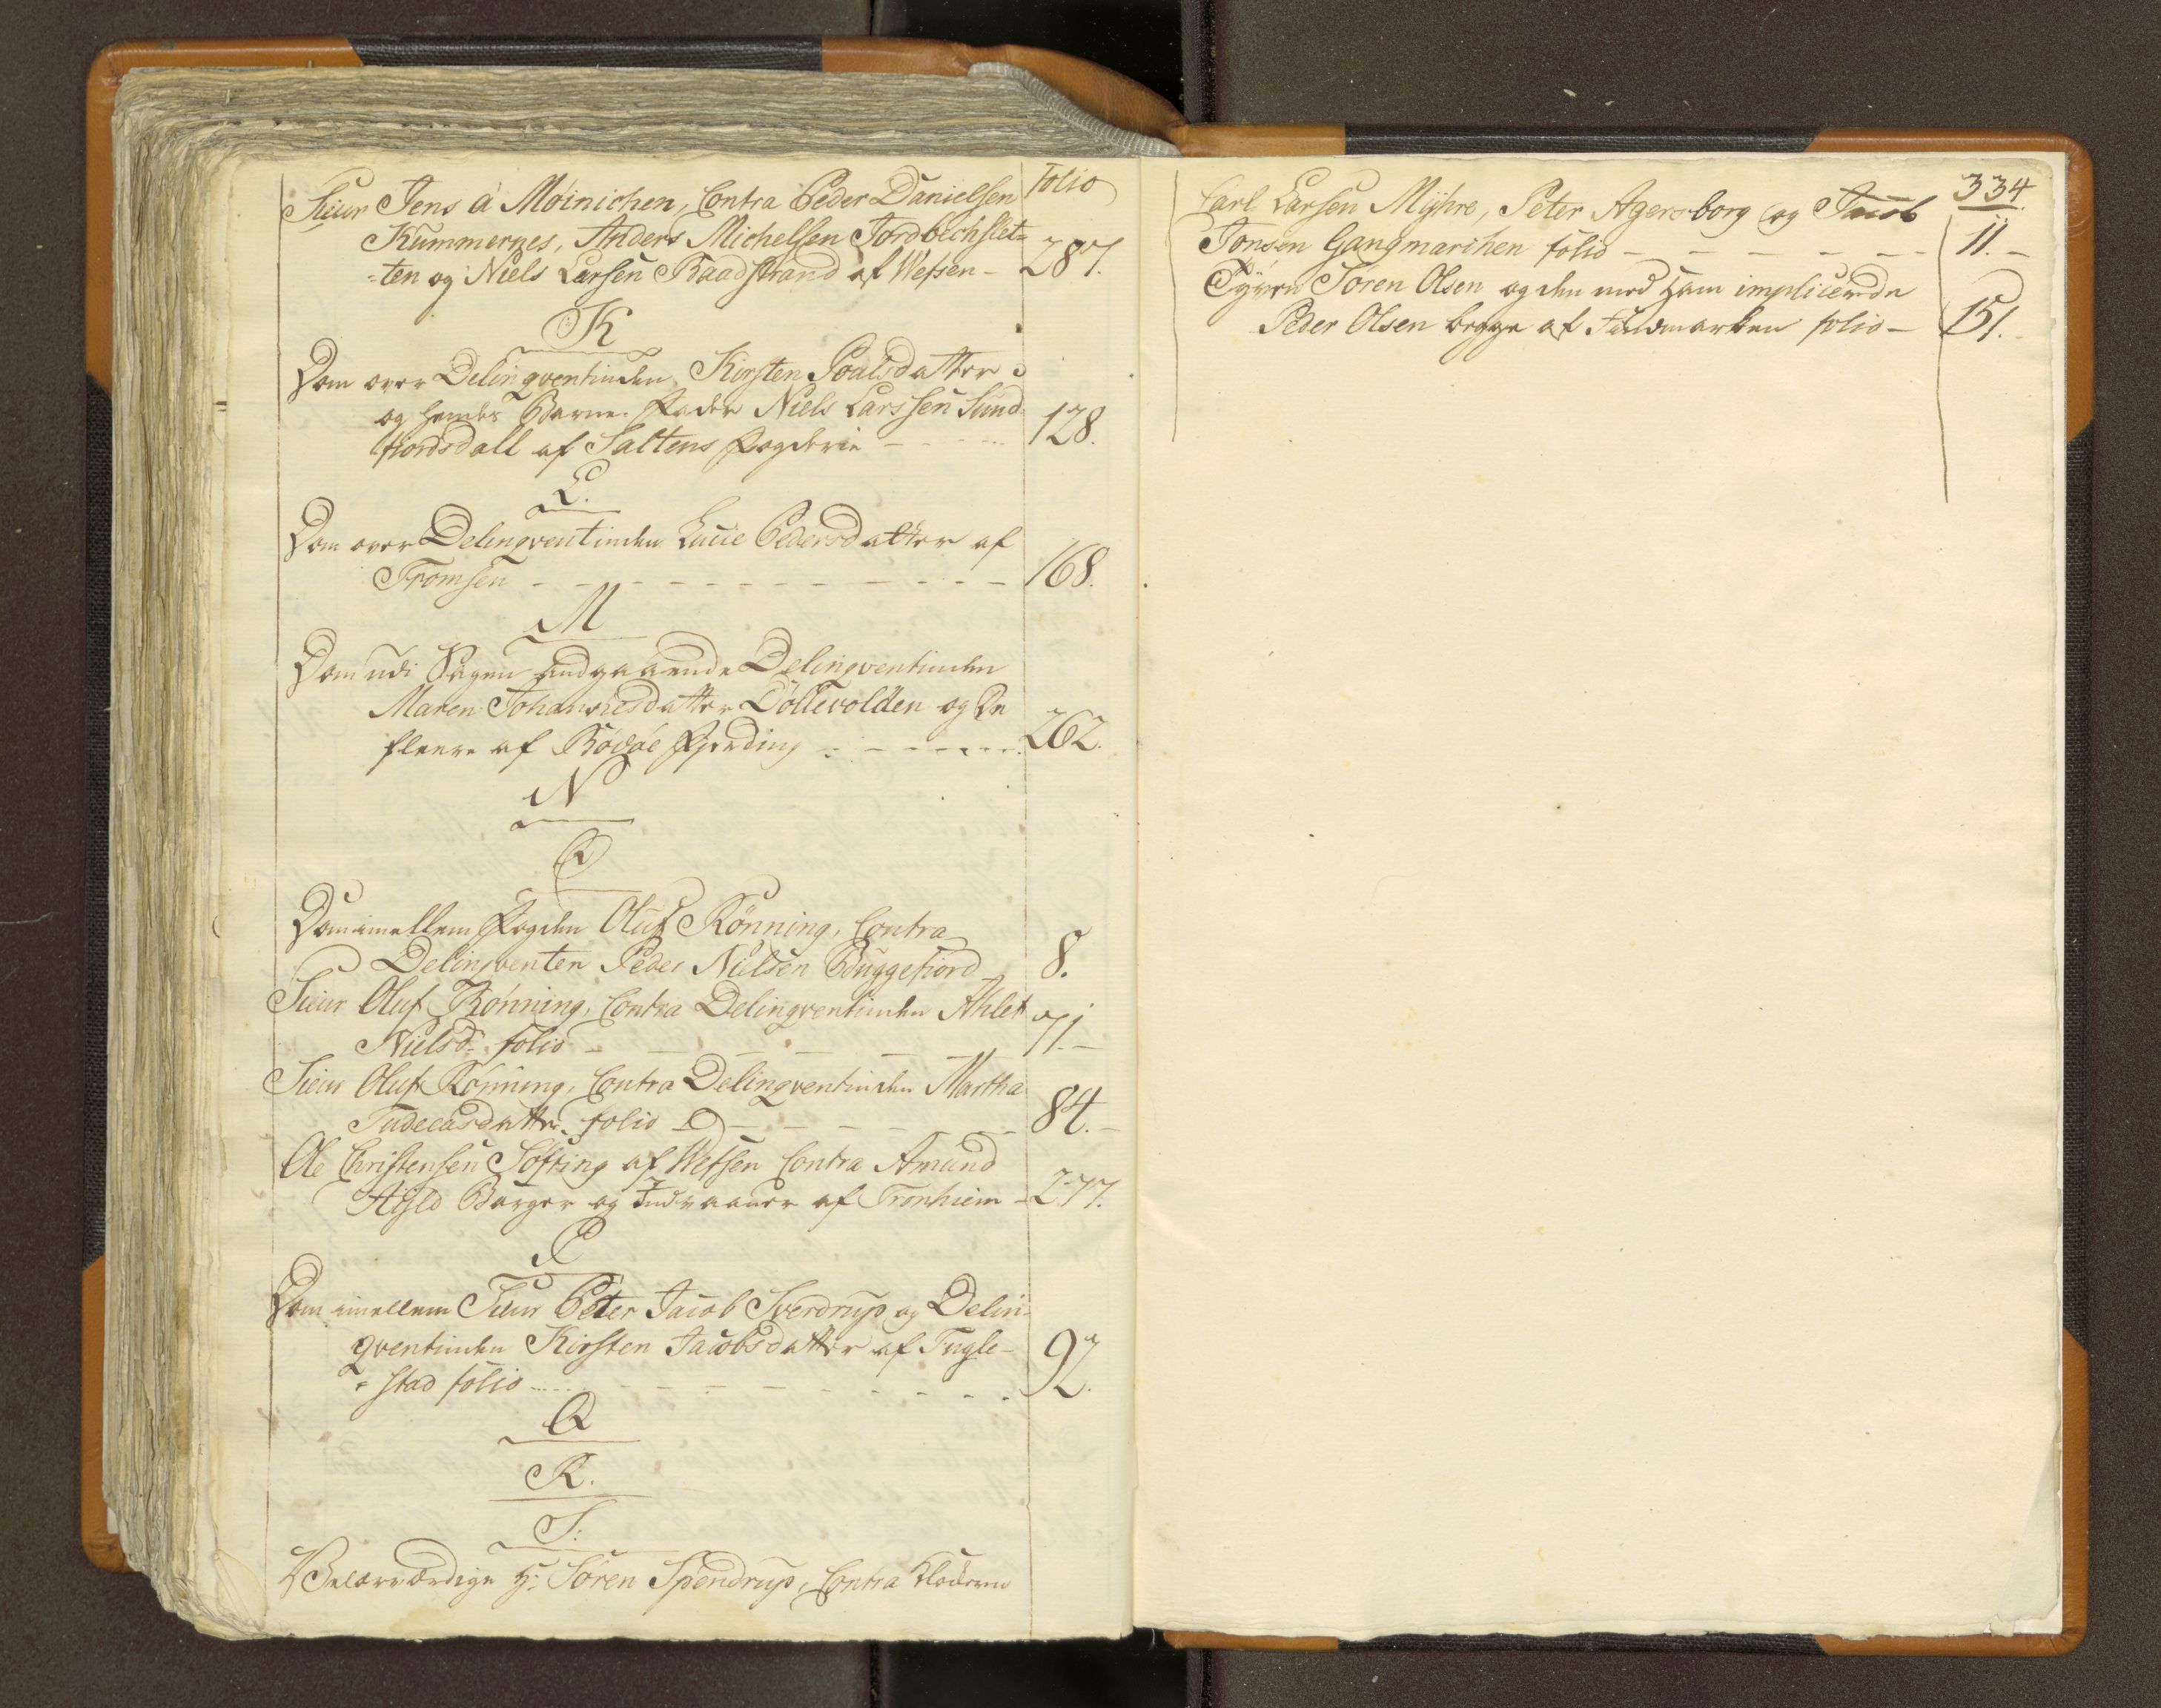 Folio
Sieur Jens á Møinichen, Contra Peder Danielsen
Kummernes, Anders Michelsen Fordbechslet=
=ten og Niels Larsen Baadstrand af Wefsen - 287.
K
Dom over Delinqventinden Kirsten Poulsdatter
og hendes Barne-Fader Niels Larssen Sund
fiordsdall af Saltens Fogderie - - - 128.
L.
Dom over Delinqventinden Lucie Pedersdatter af
Tromsen - - - - - - - - - - 168.
M
Dom udi Sagen andgaaende Delinqventinden
Maren Johannesdatter Dollevolden og De
fleere af Bodøe Fierding - - - - - - 262.
N
O
Dom imellem Fogden Oluf Rønning, Contra
Delinqventen Peder Nielsen Buggefiord - 8.
Sieur Oluf Rønning, Contra Delinqventinden Ahlet
Nielsd: folio - - - - - 71. -
Sieur Oluf Rønning, Contra Delinqventinden Martha
Judeeasdatter folio - - - - - - 84. -
Ole Christensen Søfting af Wefsen Contra Amund
Borger og Indvaaner af Tronhiem - 277.
P
Dom imellem Sieur Peter Jacob Sverdrup og Delin-
qventinden Kirsten Jacobsdatter af Fugle-
=stad folio - - - - - - - - - 92.
Q
R.
S:
Velærværdige Hr: Søren Spendrup, Contra Klockeren
334
Carl Larsen Myhre, Peter Agersborg og Jacob
Jonsen Gangmarchen folio - - - - - - 11. -
Tyven Søren Olsen og den med Ham implicerede
Peder Olsen begge af Findmarken folio - 151.